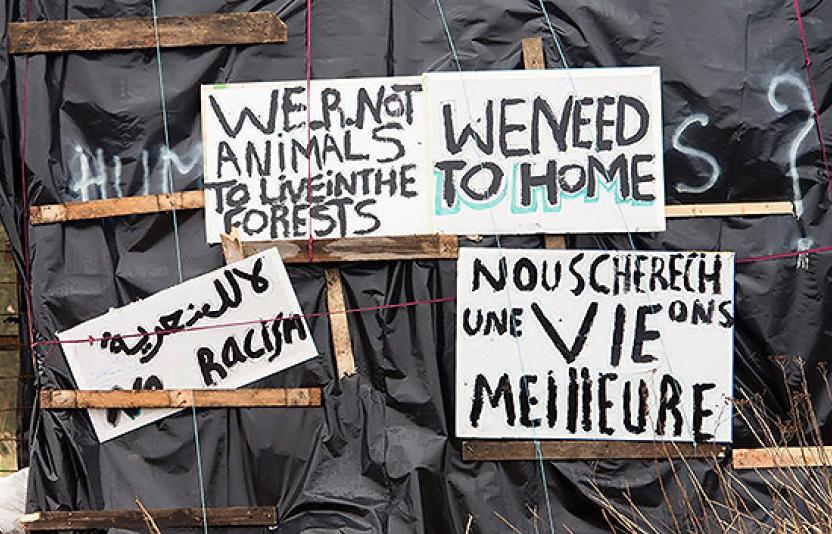 WE.R.NOT
ANIMALS
TO LIVE IN THE
FORESTS
WE NEED
TO HOME
HUM S ?
لا للعنصرية
NO RACISM
NOUS CHERECH
UNE VIE ONS
MEIllEURE